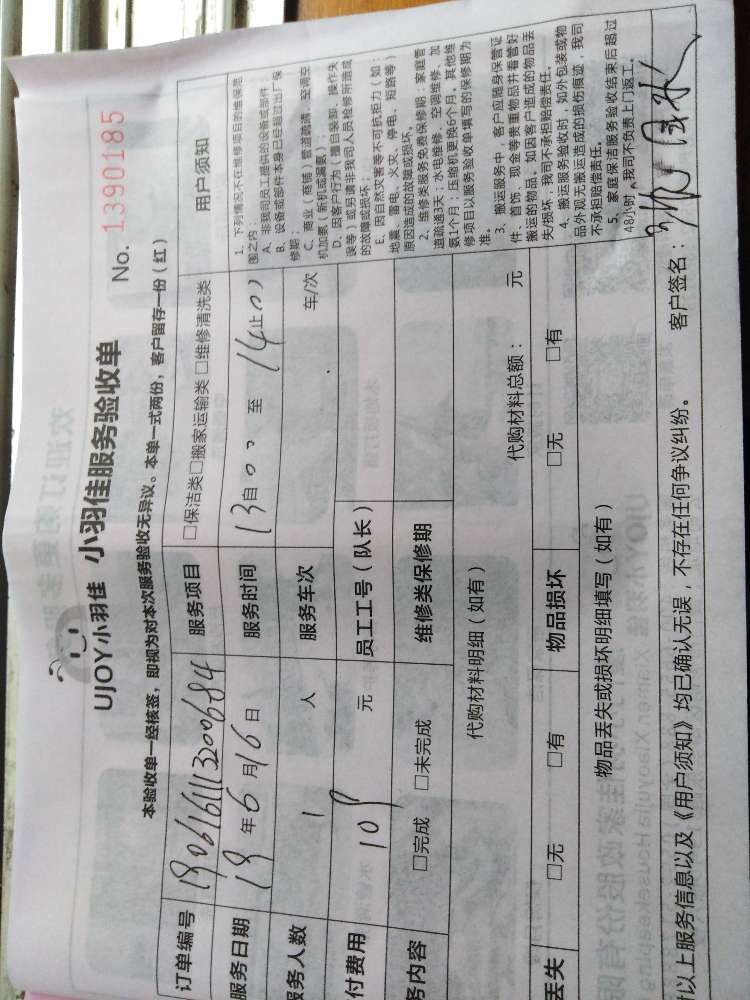 UJOY小羽佳 小羽佳服务验收单
No. 1390185
本验收单一经核签，即视为对本次服务验收无异议。本单一式两份，客户留存一份（红）
订单编号 1906161113200684 服务项目 □保洁类□搬家运输类 □维修清洗类
服务日期 19年6月16日 服务时间 13自00 至 14止00
服务人数 1 人 服务车次 车/次
付费用 109 元 员工工号（队长）
务内容 □完成 □未完成 维修类保修期
代购材料明细（如有） 代购材料总额： 元
丢失 □无 □有 物品损坏 □无 □有
物品丢失或损坏明细填写（如有）
用户须知
1、下列情况不在维修项目的维保范
围之内：
A、非我司员工提供的设备或部件；
B、设备或部件本身已经超过出厂保
修期；
C、商业（商铺）管道疏通、空调空
机加氨（新机或漏氨）；
D、因客户行为（擅自装卸、操作失
误等）或另请非我司人员检修所造成
的故障或损坏；
E、因自然灾害等不可抗拒力（如：
地震、雷电、火灾、停电、短路等）
原因造成的故障或损坏。
2、维修类服务免费保修期：家庭管
道疏通3天；水电维修、空调维修、加
氨1个月；压缩机更换6个月。其他维
修项目以服务验收单填写的保修期为
准。
3、搬运服务中，客户应随身保管证
件、首饰、现金等贵重物品并看管好
搬运的物品。如因客户造成的物品丢
失/损坏，我司不承担赔偿责任。
4、搬运服务验收时，如外包装或物
品外观无搬运造成的损伤痕迹，我司
不承担赔偿责任。
5、家庭保洁服务验收结束后超过
48小时，我司不负责上门返工。
以上服务信息以及《用户须知》均已确认无误，不存在任何争议纠纷。 客户签名：